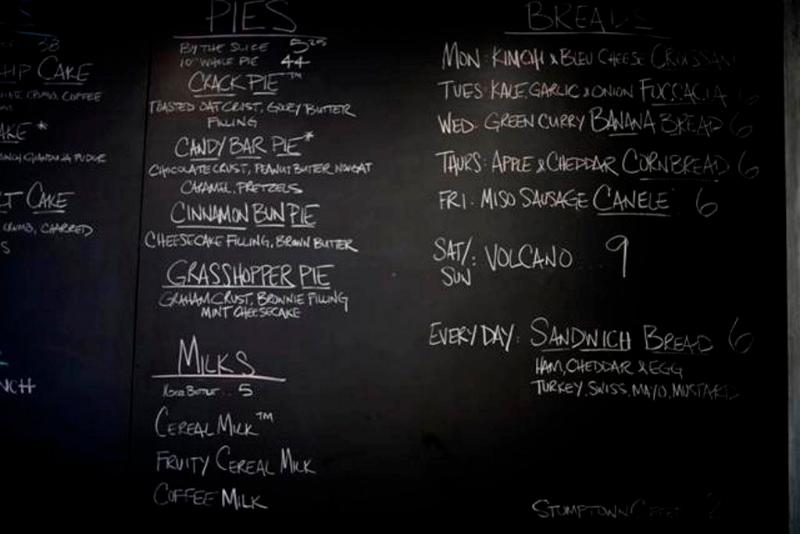 38
CAKE
COFFEE
CAKE
CAKE
CRUMB, CHARRED
PIES
BY THE SLICE 5
10" WHOLE PIE 44
CRACK PIE™
TOASTED OAT CRUST, GOOEY BUTTER
FILLING
CANDY BAR PIE*
CHOCOLATE CRUST, PEANUT BUTTER NOUGAT
CARAMEL, PRETZELS
CINNAMON BUN PIE
CHEESECAKE FILLING, BROWN BUTTER
GRASSHOPPER PIE
GRAHAM CRUST, BROWNIE FILLING
MINT CHEESECAKE
MILKS
BOTTLE .. 5
CEREAL MILK™
FRUITY CEREAL MILK
COFFEE MILK
BREADS
MON: KIMCHI & BLEU CHEESE CROISSANT
TUES: KALE, GARLIC & ONION FOCCACIA 6
WED: GREEN CURRY BANANA BREAD 6
THURS: APPLE & CHEDDAR CORNBREAD 6
FRI: MISO SAUSAGE CANELE 6
SAT/
SUN: VOLCANO ... 9
EVERYDAY: SANDWICH BREAD 6
HAM, CHEDDAR & EGG
TURKEY, SWISS, MAYO, MUSTARD
STUMPTOWN